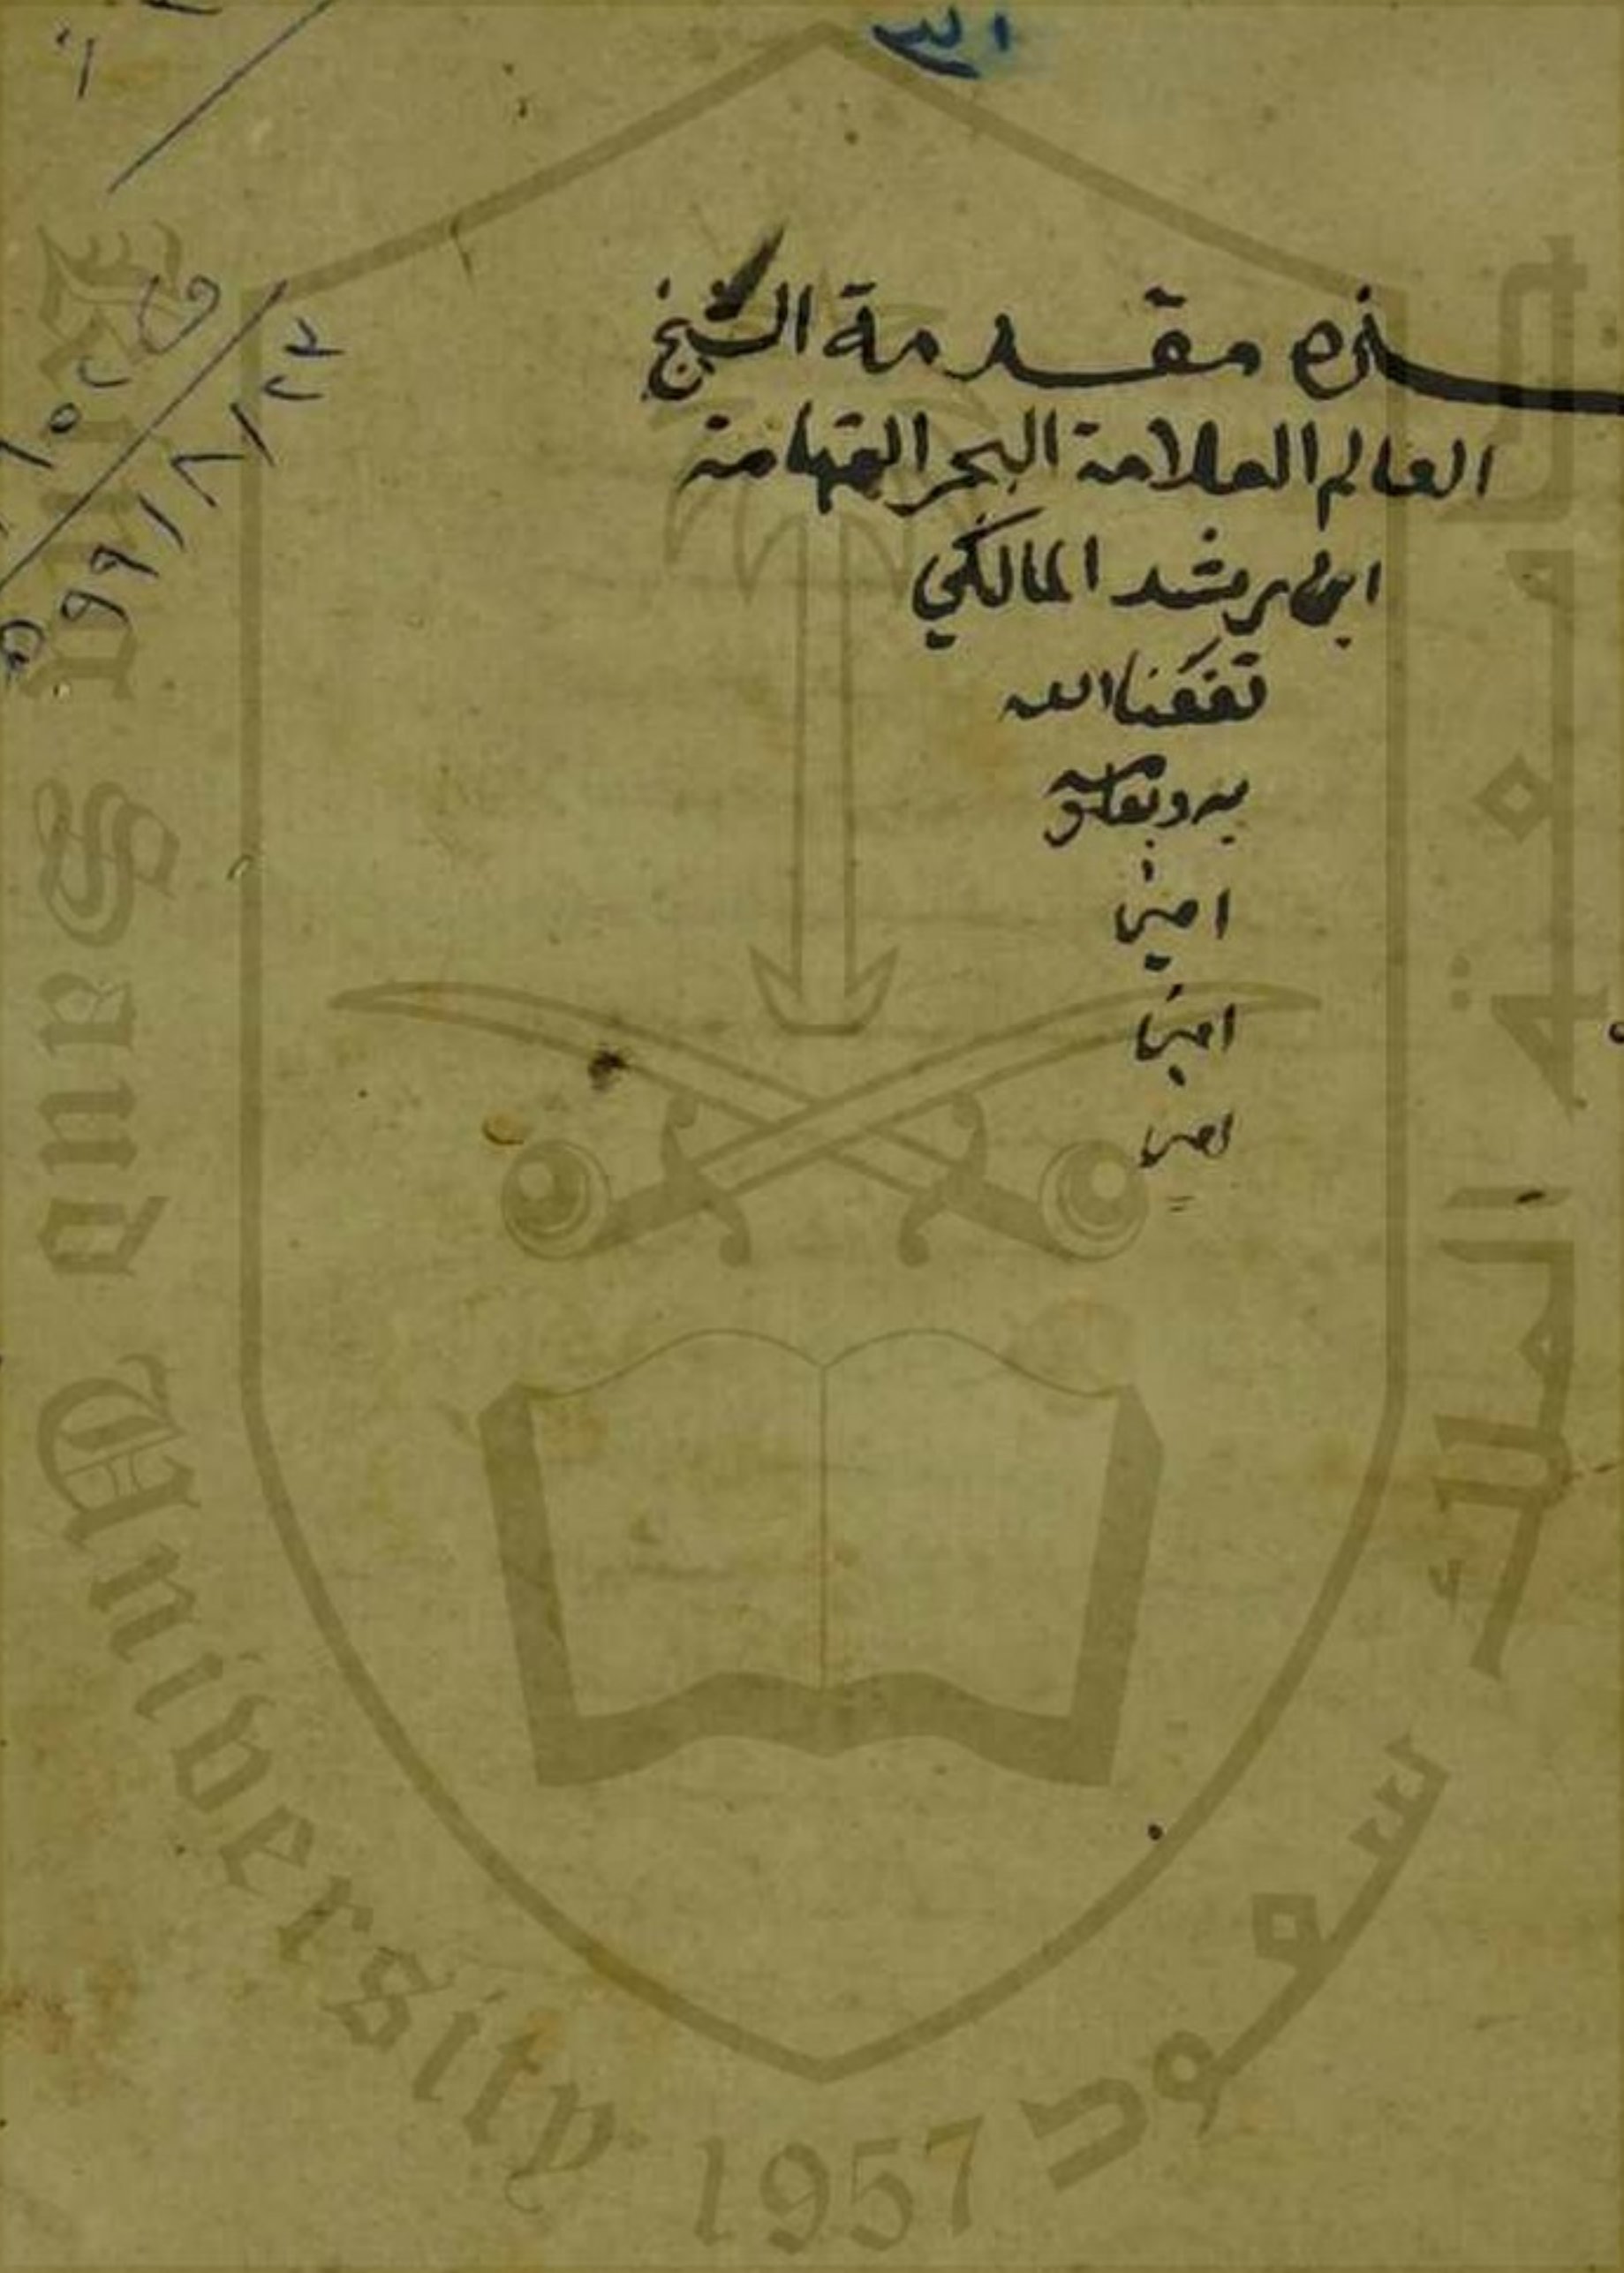 هذه مقدمة الشيخ
العالم العلامة البحر الفهامة
ابن رشد المالكي
نفعنا الله
به وبعلومه
امين
امين
امين
King Saud University 1957
جامعة الملك سعود